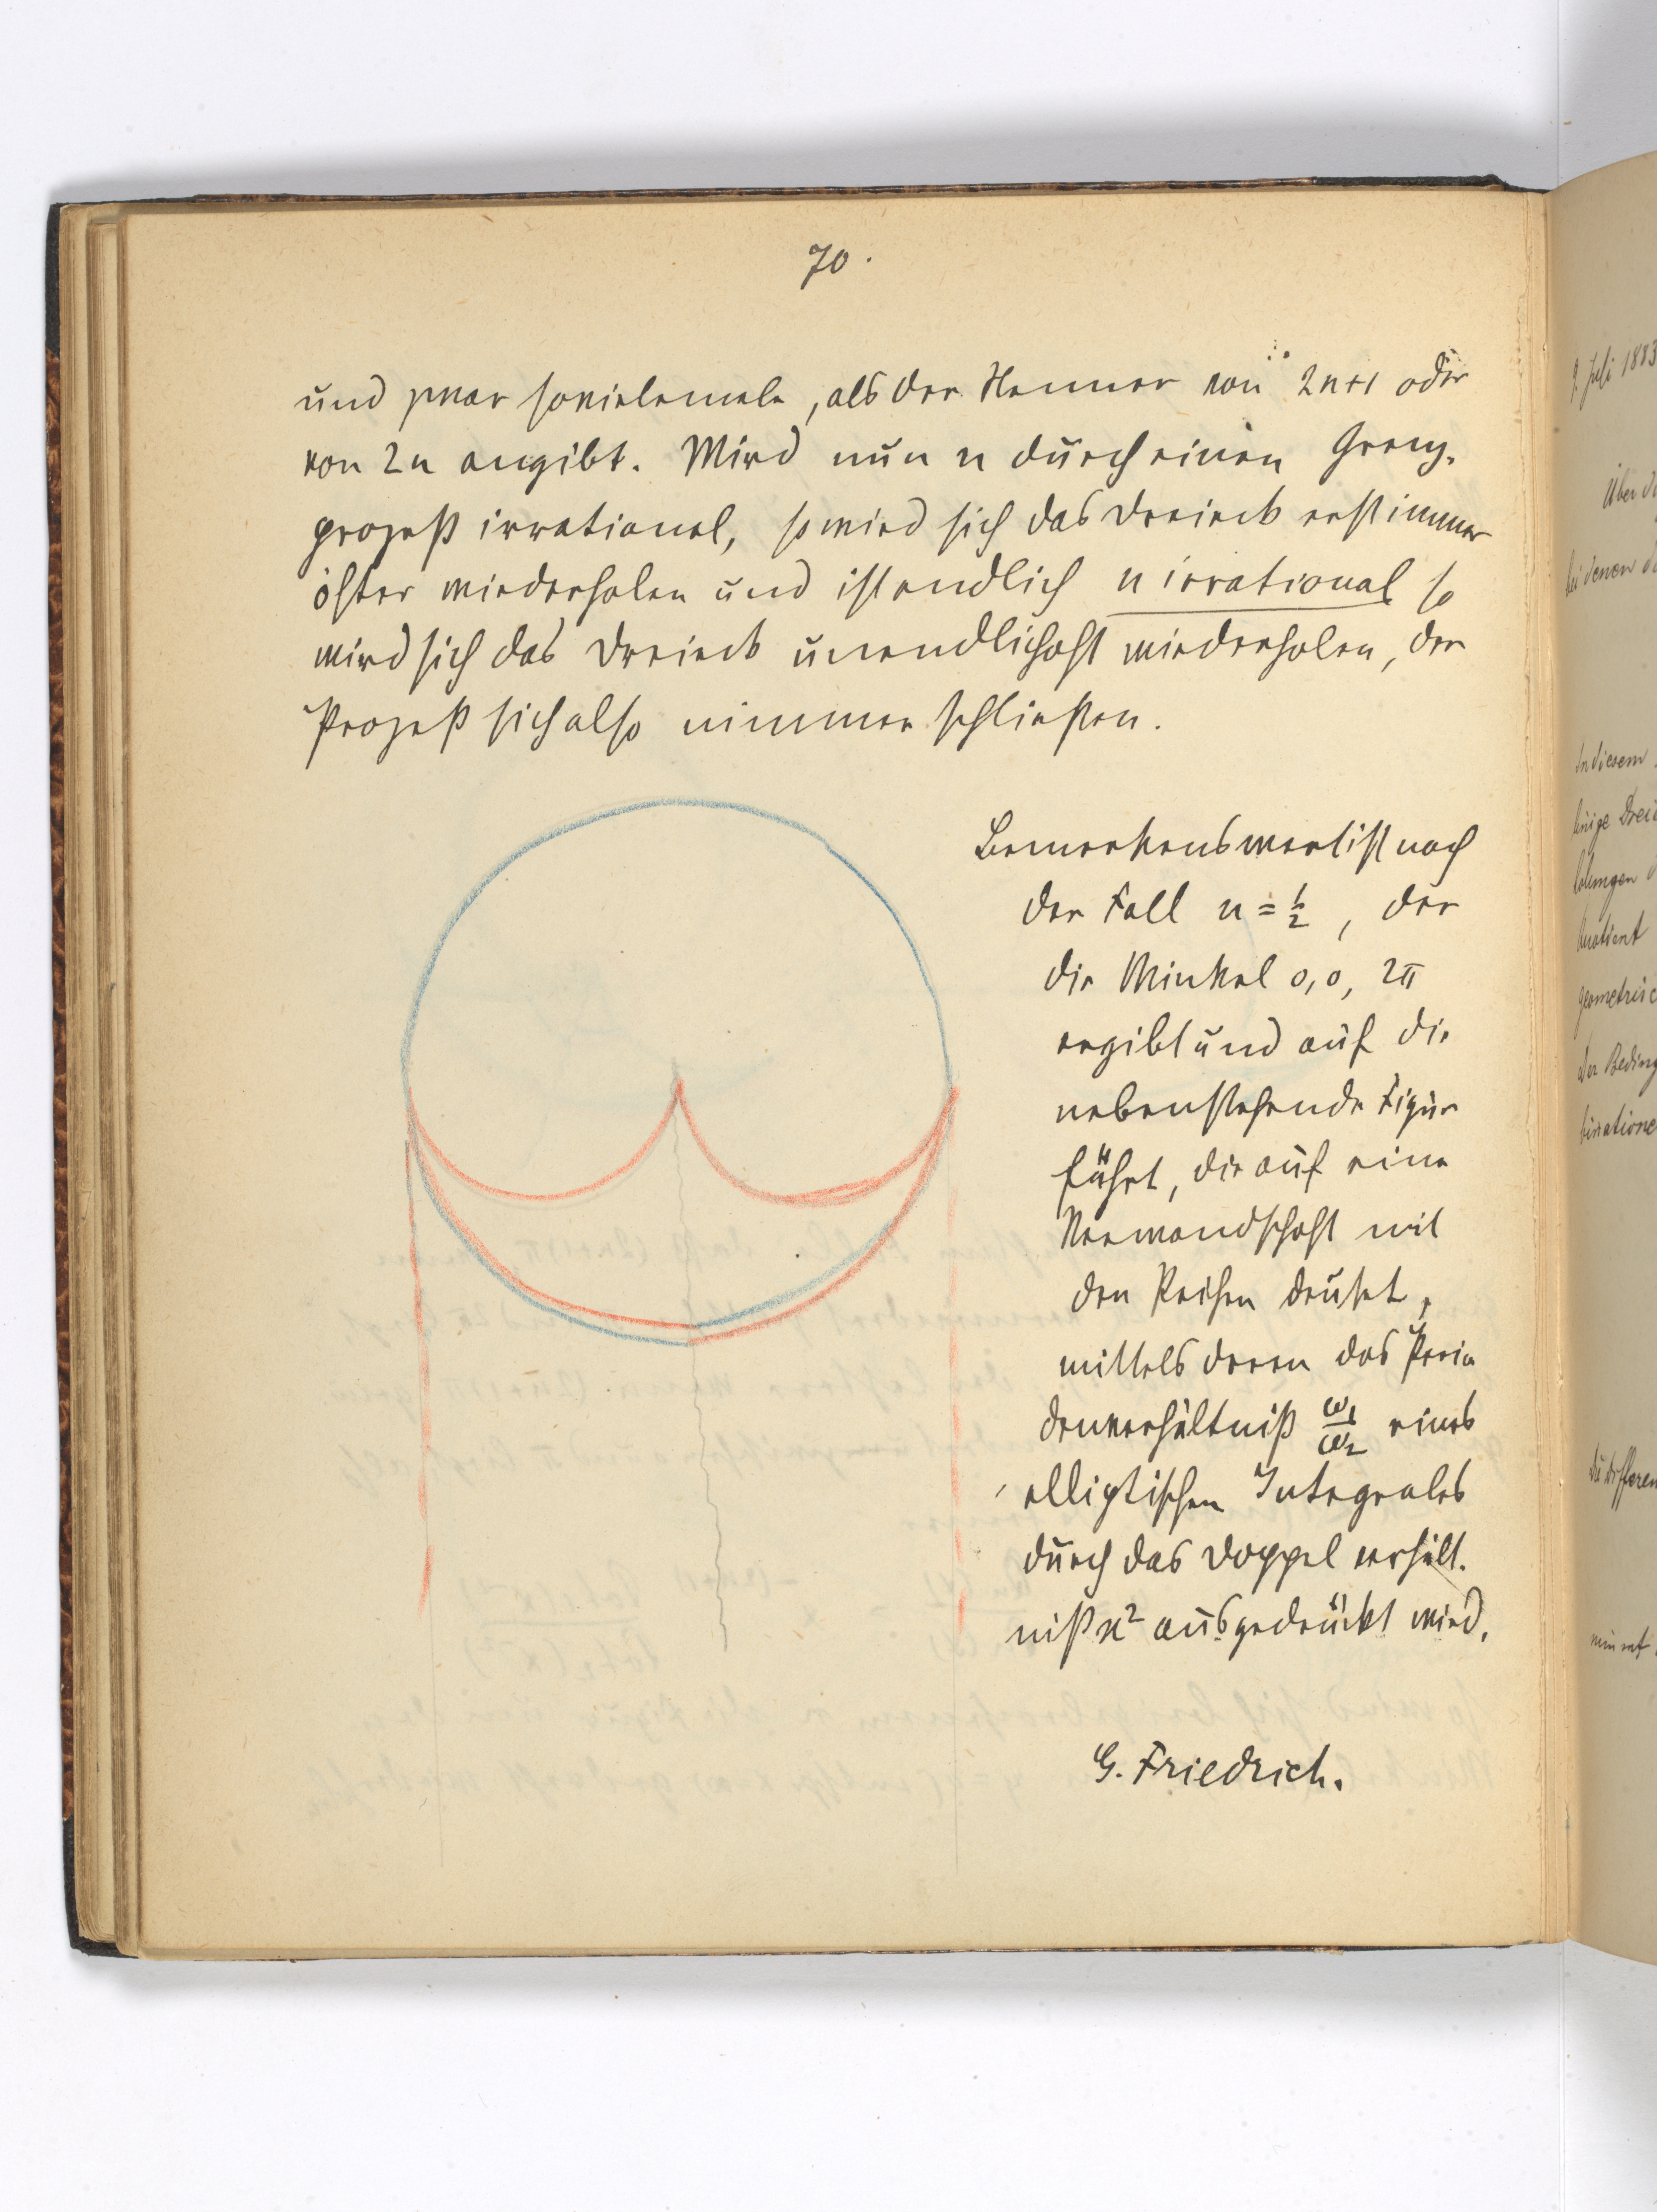 70.
und zwar sovielemale, als der Nenner von 2n+1 oder
von 2n angibt. Wird nun n durch einen Grenz-
prozeß irrational, so wird sich das Dreieck erst immer
öfter wiederholen und ist endlich n irrational so
wird sich das Dreieck unendlich oft wiederholen, der
Prozeß sich also nimmer schließen.
Bemerkenswert ist noch
der Fall n = 1/2, der
die Winkel 0, 0, 2π
ergibt und auf die
nebenstehende Figur
führt, die auf eine
Verwandschaft mit
den Reihen deutet,
mittels deren das Perio
denverhältniß ω1/ω2 eines
elliptischen Integrales
durch das Doppelverhält-
niß ϰ² ausgedrückt wird.
G. Friedrich.
9. Juli 1883
Über d
bei denen d
In diesem
einige Drei
geometrisc
der Beding